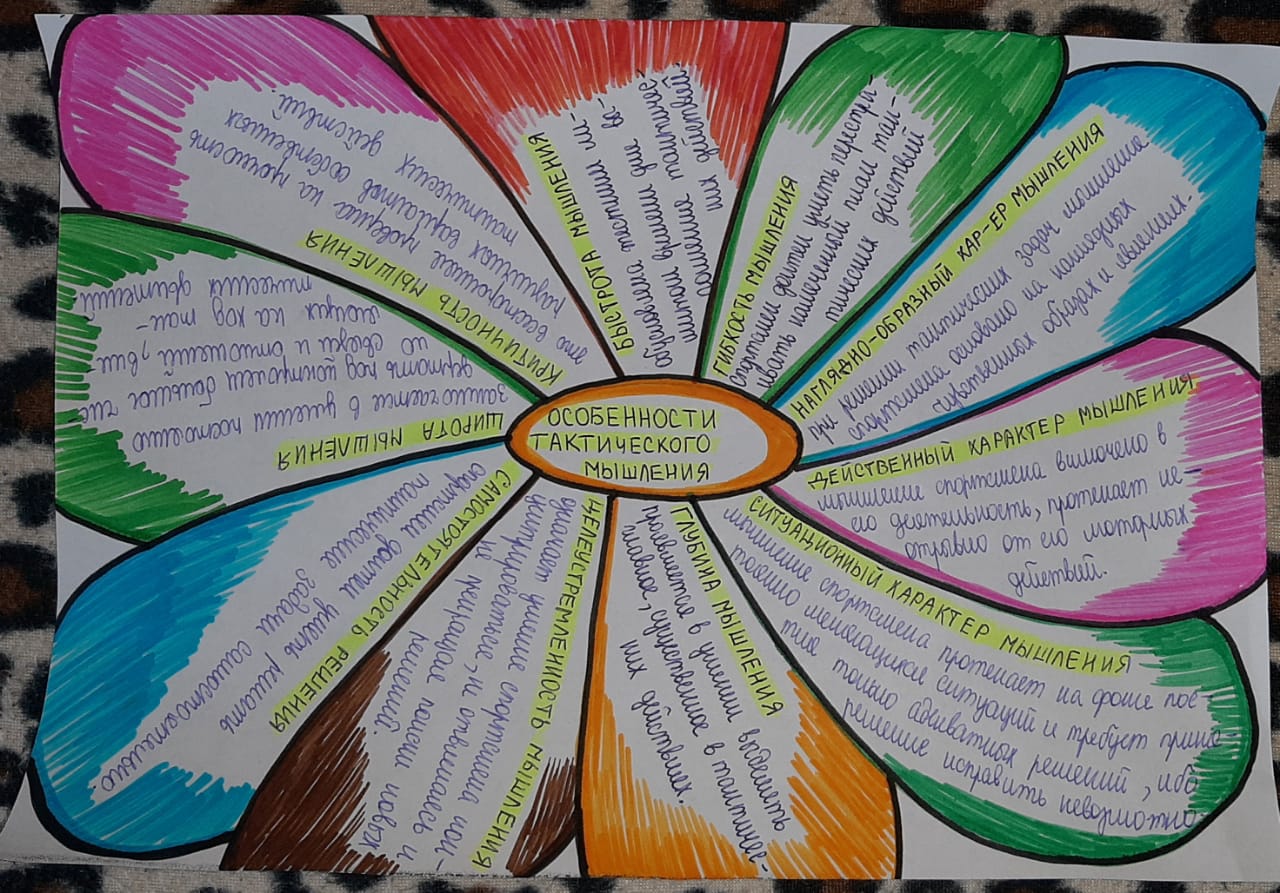 ОСОБЕННОСТИ
ТАКТИЧЕСКОГО
МЫШЛЕНИЯ
БЫСТРОТА МЫШЛЕНИЯ
действий
ГИБКОСТЬ МЫШЛЕНИЯ
спортсмен должен уметь перестра-
ивать намеченный план так-
тических действий
НАГЛЯДНО-ОБРАЗНЫЙ ХАР-ЕР МЫШЛЕНИЯ
при решении тактических задач мышление
спортсмена основано на наглядных
чувственных образах и явлениях.
ДЕЙСТВЕННЫЙ ХАРАКТЕР МЫШЛЕНИЯ
мышление спортсмена включено в
его деятельность, протекает не-
отрывно от его моторных
действий.
СИТУАЦИОННЫЙ ХАРАКТЕР МЫШЛЕНИЯ
мышление спортсмена протекает на фоне пос-
тоянно меняющихся ситуаций и требует приня-
тие только адекватных решений, ибо
решение исправить невозможно
ГЛУБИНА МЫШЛЕНИЯ
проявляется в умении выделять
главное, существенное в тактичес-
ких действиях.
ЦЕЛЕУСТРЕМЛЕННОСТЬ МЫШЛЕНИЯ
умение спортсмена кон-
не отвлекаясь
на поиски новых
решений
САМОСТОЯТЕЛЬНОСТЬ РЕШЕНИЯ
спортсмен должен уметь решать
тактические задачи самостоятельно.
ШИРОТА МЫШЛЕНИ
заключается в умении постоянно
держать под контролем большое чис-
ло связей и отношений, вли-
яющих на ход так-
тических действий.
КРИТИЧНОСТЬ МЫШЛЕНИЯ
это всесторонняя проверка на прочность
различных вариантов собственных
тактических действий